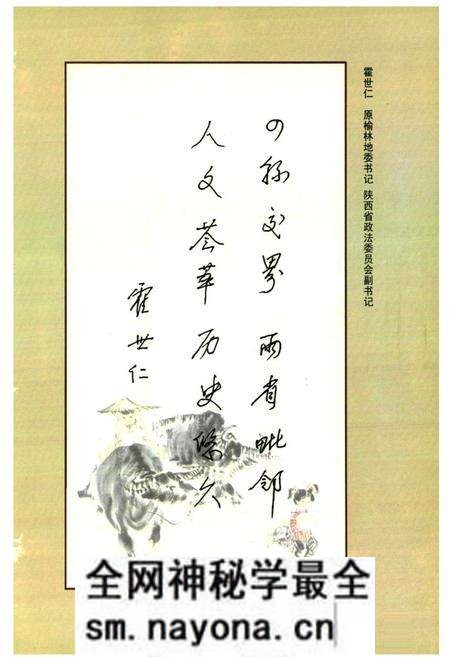 霍世仁 原榆林地委书记 陕西省政法委员会副书记
四县交界 两省毗邻
人文荟萃 历史悠久
霍世仁
全网神秘学最全
sm.nayona.cn